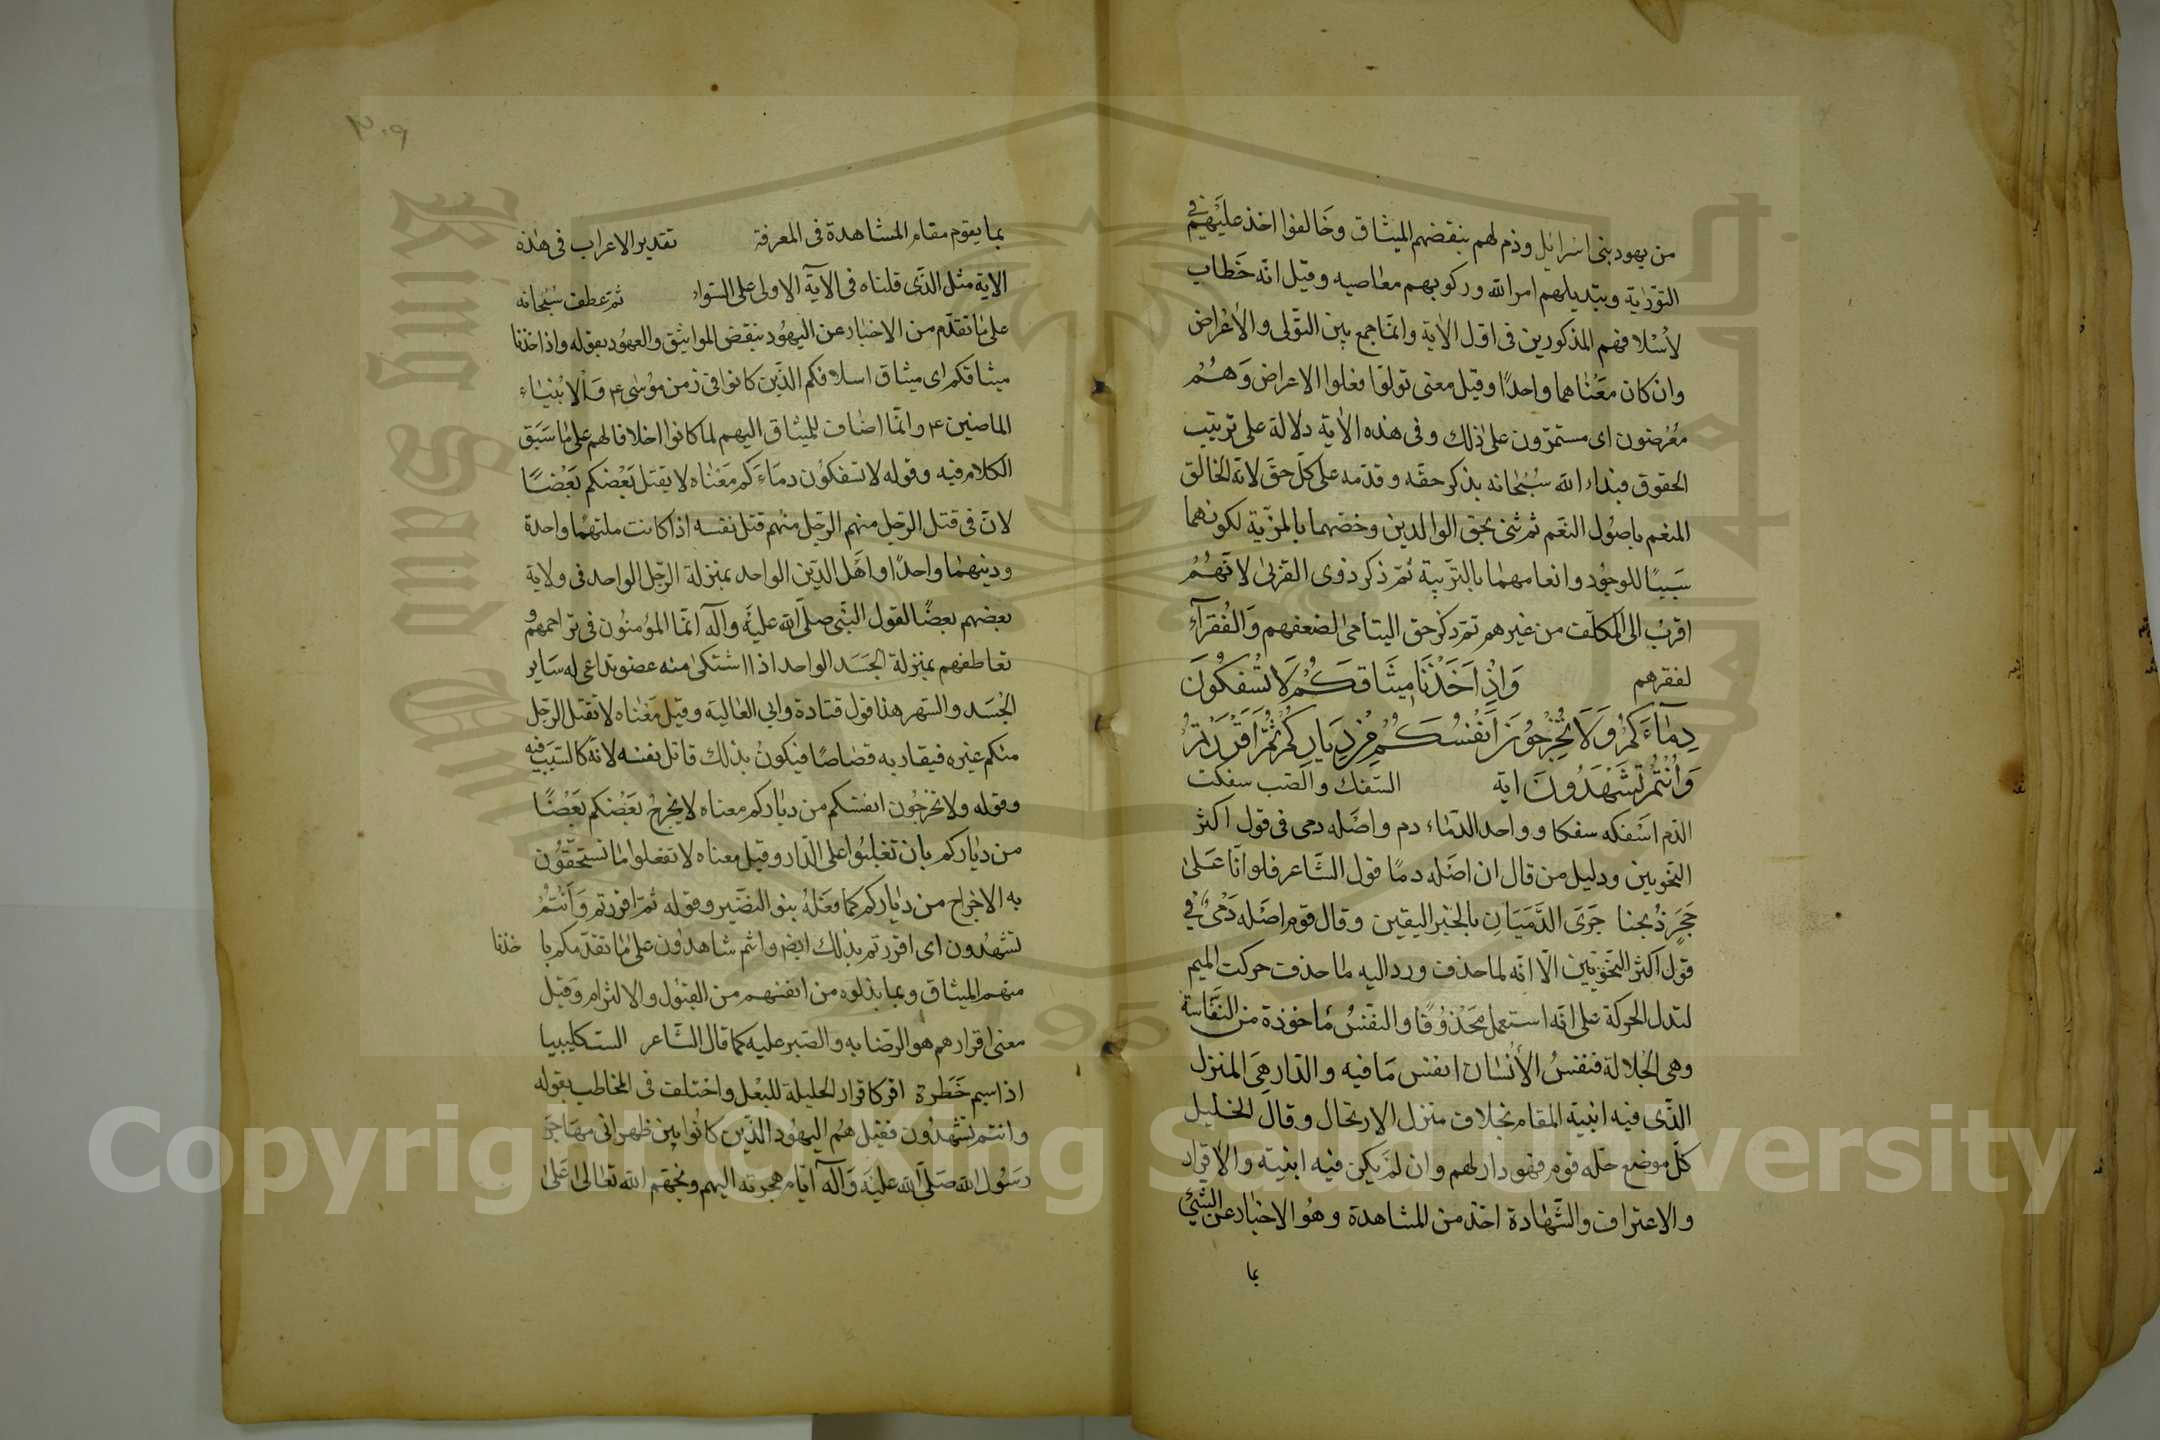 من يهود بنى اسرائيل وذم لهم بنقضهم الميثاق وخالفوا اخذ عليهم فى
التورية وبتديلهم امر الله وركوبهم معاصيه وقيل انه خطاب
لأسلافهم المذكورين فى اول الاية وانما جمع بين التولى والاعراض
وان كان معناهما واحدًا وقيل معنى تولوا فعلوا الاعراض وهم
معرضون اى مستمرون على ذلك وفى هذه الاية دلالة على ترتيب
الحقوق فبداء الله سبحانه بذكر حقه وقدمه على كل حق لانه الخالق
المنعم باصول النعم ثم ثنى بحق الوالدين وخصهما بالمزية لكونهما
سببًا للوجود وانعامهما بالتربية ثم ذكر ذوى القربى لانهم
اقرب الى المكلف من غيرهم ثم ذكر حق اليتامى لضعفهم والفقرآء
لفقرهم وَاِذْ اَخَذْنَا مِيثَاقَكُمْ لَا تَسْفِكُونَ
دِمَآءَكُمْ وَلَا تُخْرِجُونَ اَنْفُسَكُمْ مِنْ دِيَارِكُمْ ثُمَّ اَقْرَرْتُمْ
وَاَنْتُمْ تَشْهَدُونَ اية السفك والصب سفكت
الدم اسفكه سفكا وواحد الدماء دم واصله دمى فى قول اكثر
النحويين ودليل من قال ان اصله دمًا قول الشاعر فلو انا على
حجر ذبحنا جرى الدميان بالخبر اليقين وقال قوم اصله دمى فى
قول اكثر النحويين الا انه لما حذف ورد اليه ما حذف حركت الميم
لتدل الحركة على انه استعمل محذوفًا والنفس ماخوذة من النفاسة
وهى الجلالة فنفس الأنسان انفس ما فيه والدار هى المنزل
الذى فيه ابنية المقام بخلاف منزل الارتحال وقال الخليل
كل موضع حله قوم فهو دار لهم وان لم يكن فيه ابنية والاقرار
والاعتراف والشهادة اخذ من المشاهدة وهو الاخبار عن الشئ
بما
٣٠٩
بما يقوم مقام المشاهدة فى المعرفة تقدير الاعراب فى هذه
الاية مثل الذى قلناه فى الآية الاولى على السواء ثم عطف سبحانه
على ما تقدم من الاخبار عن اليهود بنقض المواثيق والعهود بقوله واذ اخذنا
ميثاقكم اى ميثاق اسلافكم الذين كانوا فى زمن موسى ع والانبياء
الماضين ع وانما اضاف الميثاق اليهم لما كانوا اخلافا لهم على ما سبق
الكلام فيه وقوله لا تسفكون دماءكم معناه لا يقتل بعضكم بعضًا
لان فى قتل الرجل منهم الرجل منهم قتل نفسه اذا كانت ملتهما واحدة
ودينهما واحدًا واهل الدين الواحد بمنزلة الرجل الواحد فى ولاية
بعضهم بعضًا لقول النبى صلى الله عليه وآله انما المؤمنون فى تراحمهم و
تعاطفهم بمنزلة الجسد الواحد اذا اشتكى منه عضو تداعى له ساير
الجسد والسهر هذا قول قتادة وابى العالية وقيل معناه لا تقتل الرجل
منكم غيره فيقاد به قصاصًا فيكون بذلك قاتل نفسه لانه كالسبب فيه
وقوله ولا تخرجون انفسكم من دياركم معناه لا يخرج بعضكم بعضًا
من دياركم بان تغلبوا على الدار وقيل معناه لا تفعلوا ما تستحقون
به الاخراج من دياركم كما فعله بنو النضير وقوله ثم اقررتم وانتم
تشهدون اى اقررتم بذلك ايض وانتم شاهدون على ما تقدمكم با خذنا
منهم الميثاق وبما بذلوه من انفسهم من القبول والالتزام وقيل
معنى اقرارهم هو الرضا به والصبر عليه كما قال الشاعر
اذا سيم خطرة اقر كاقرار الحليلة للبعل واختلف فى المخاطب بقوله
وانتم تشهدون فقيل هم اليهود الذين كانوا بين ظهرانى مهاجر
رسول الله صلى الله عليه وآله ايام هجرته اليهم وبخهم الله تعالى على
Copyright © King Saud University